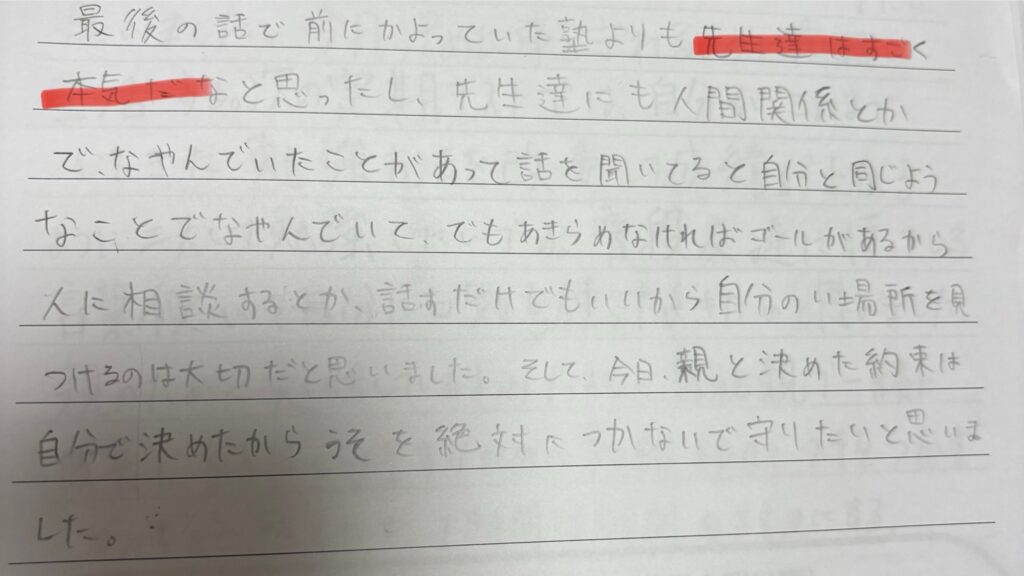 最後の話で前にかよっていた塾よりも先生達はすごく
本気だなと思ったし、先生達にも人間関係とか
で、なやんでいたことがあって話を聞いてると自分と同じよう
なことでなやんでいて、でもあきらめなければゴールがあるから
人に相談するとか、話すだけでもいいから自分のい場所を見
つけるのは大切だと思いました。そして、今日、親と決めた約束は
自分で決めたからうそを絶対につかないで守りたいと思いま
した。